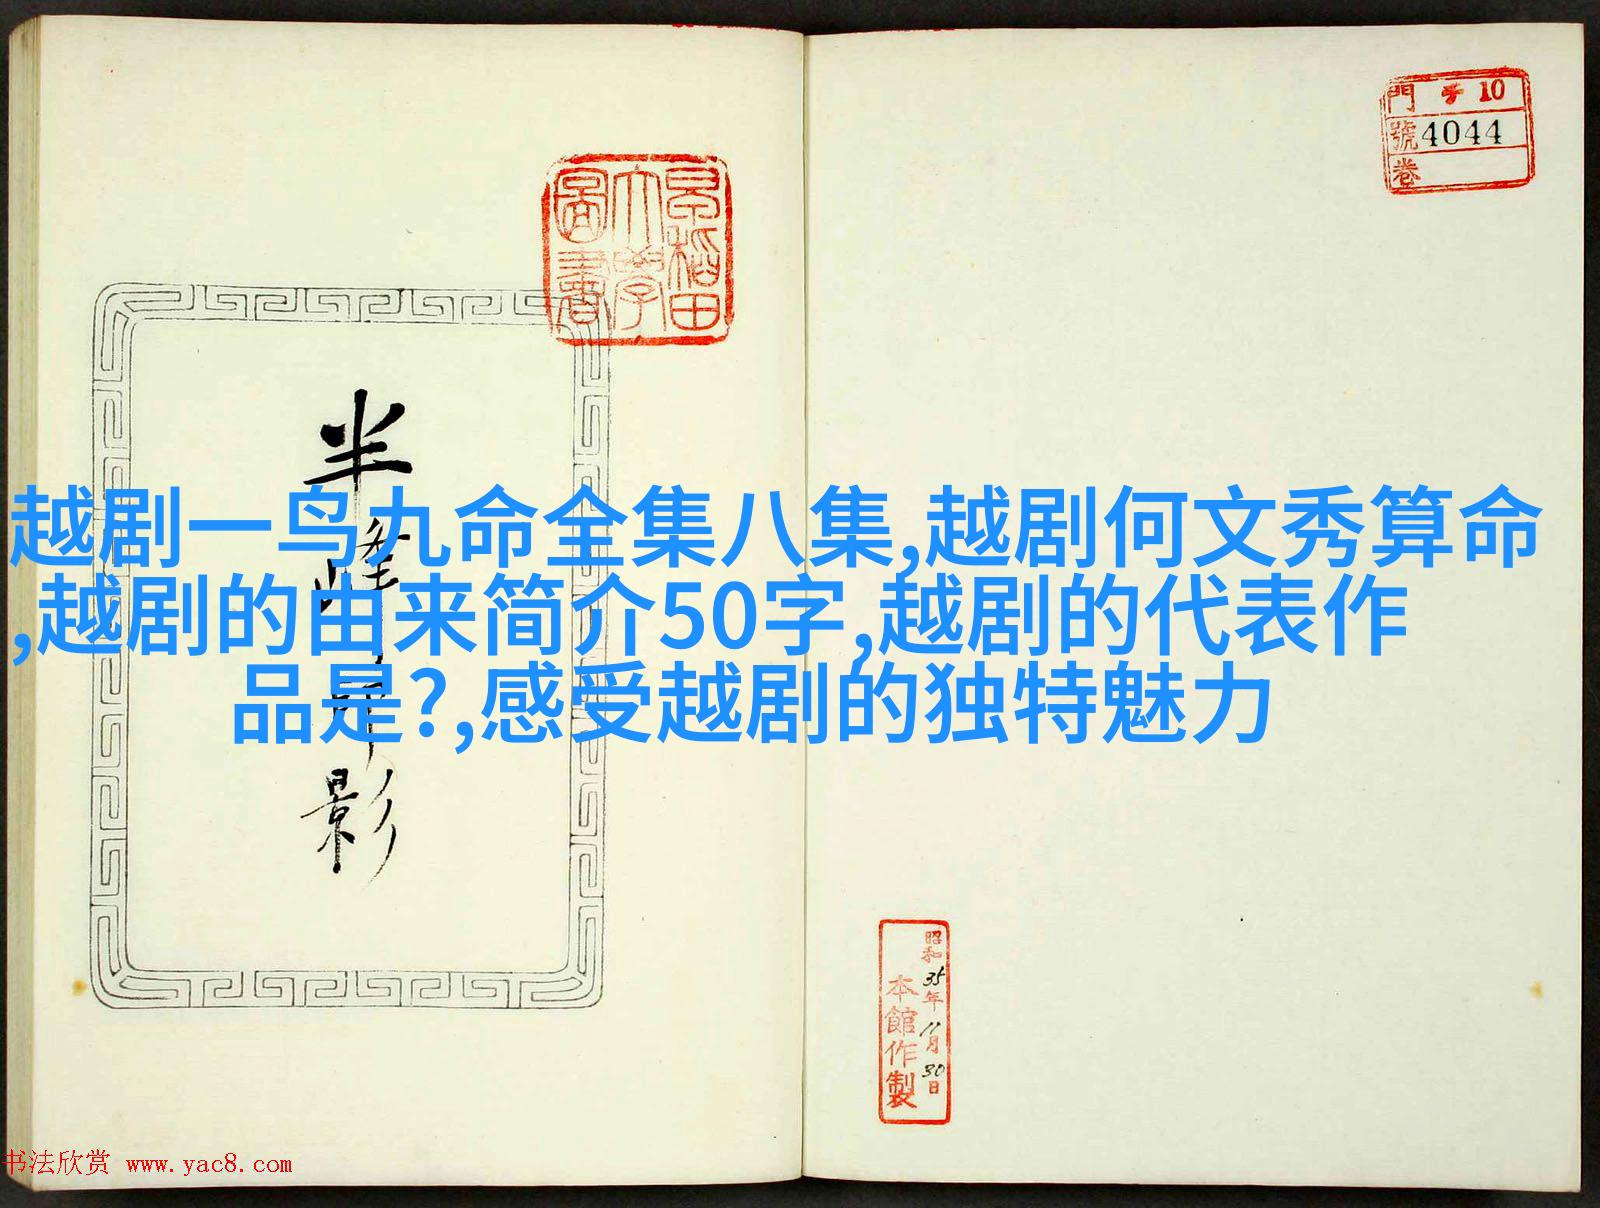 門 10
號 4044
卷
早稻田
大學
圖書
越剧一鸟九命全集八集,越剧何文秀算命
,越剧的由来简介50字,越剧的代表作
品是?,感受越剧的独特魅力
半
峰
影
昭和35年11月30日
本館作製
书法欣赏 www.yac8.com